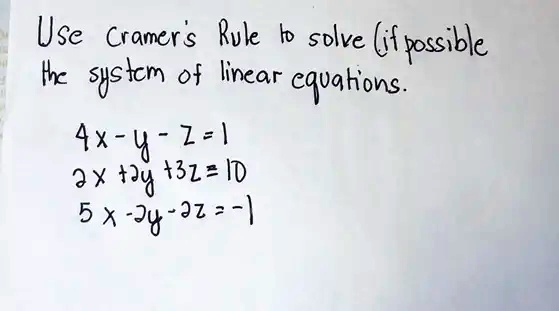 Use Cramer's Rule to solve (if possible
the system of linear equations.
4x - y - z = 1
2x + 2y + 3z = 10
5x - 2y - 2z = -1